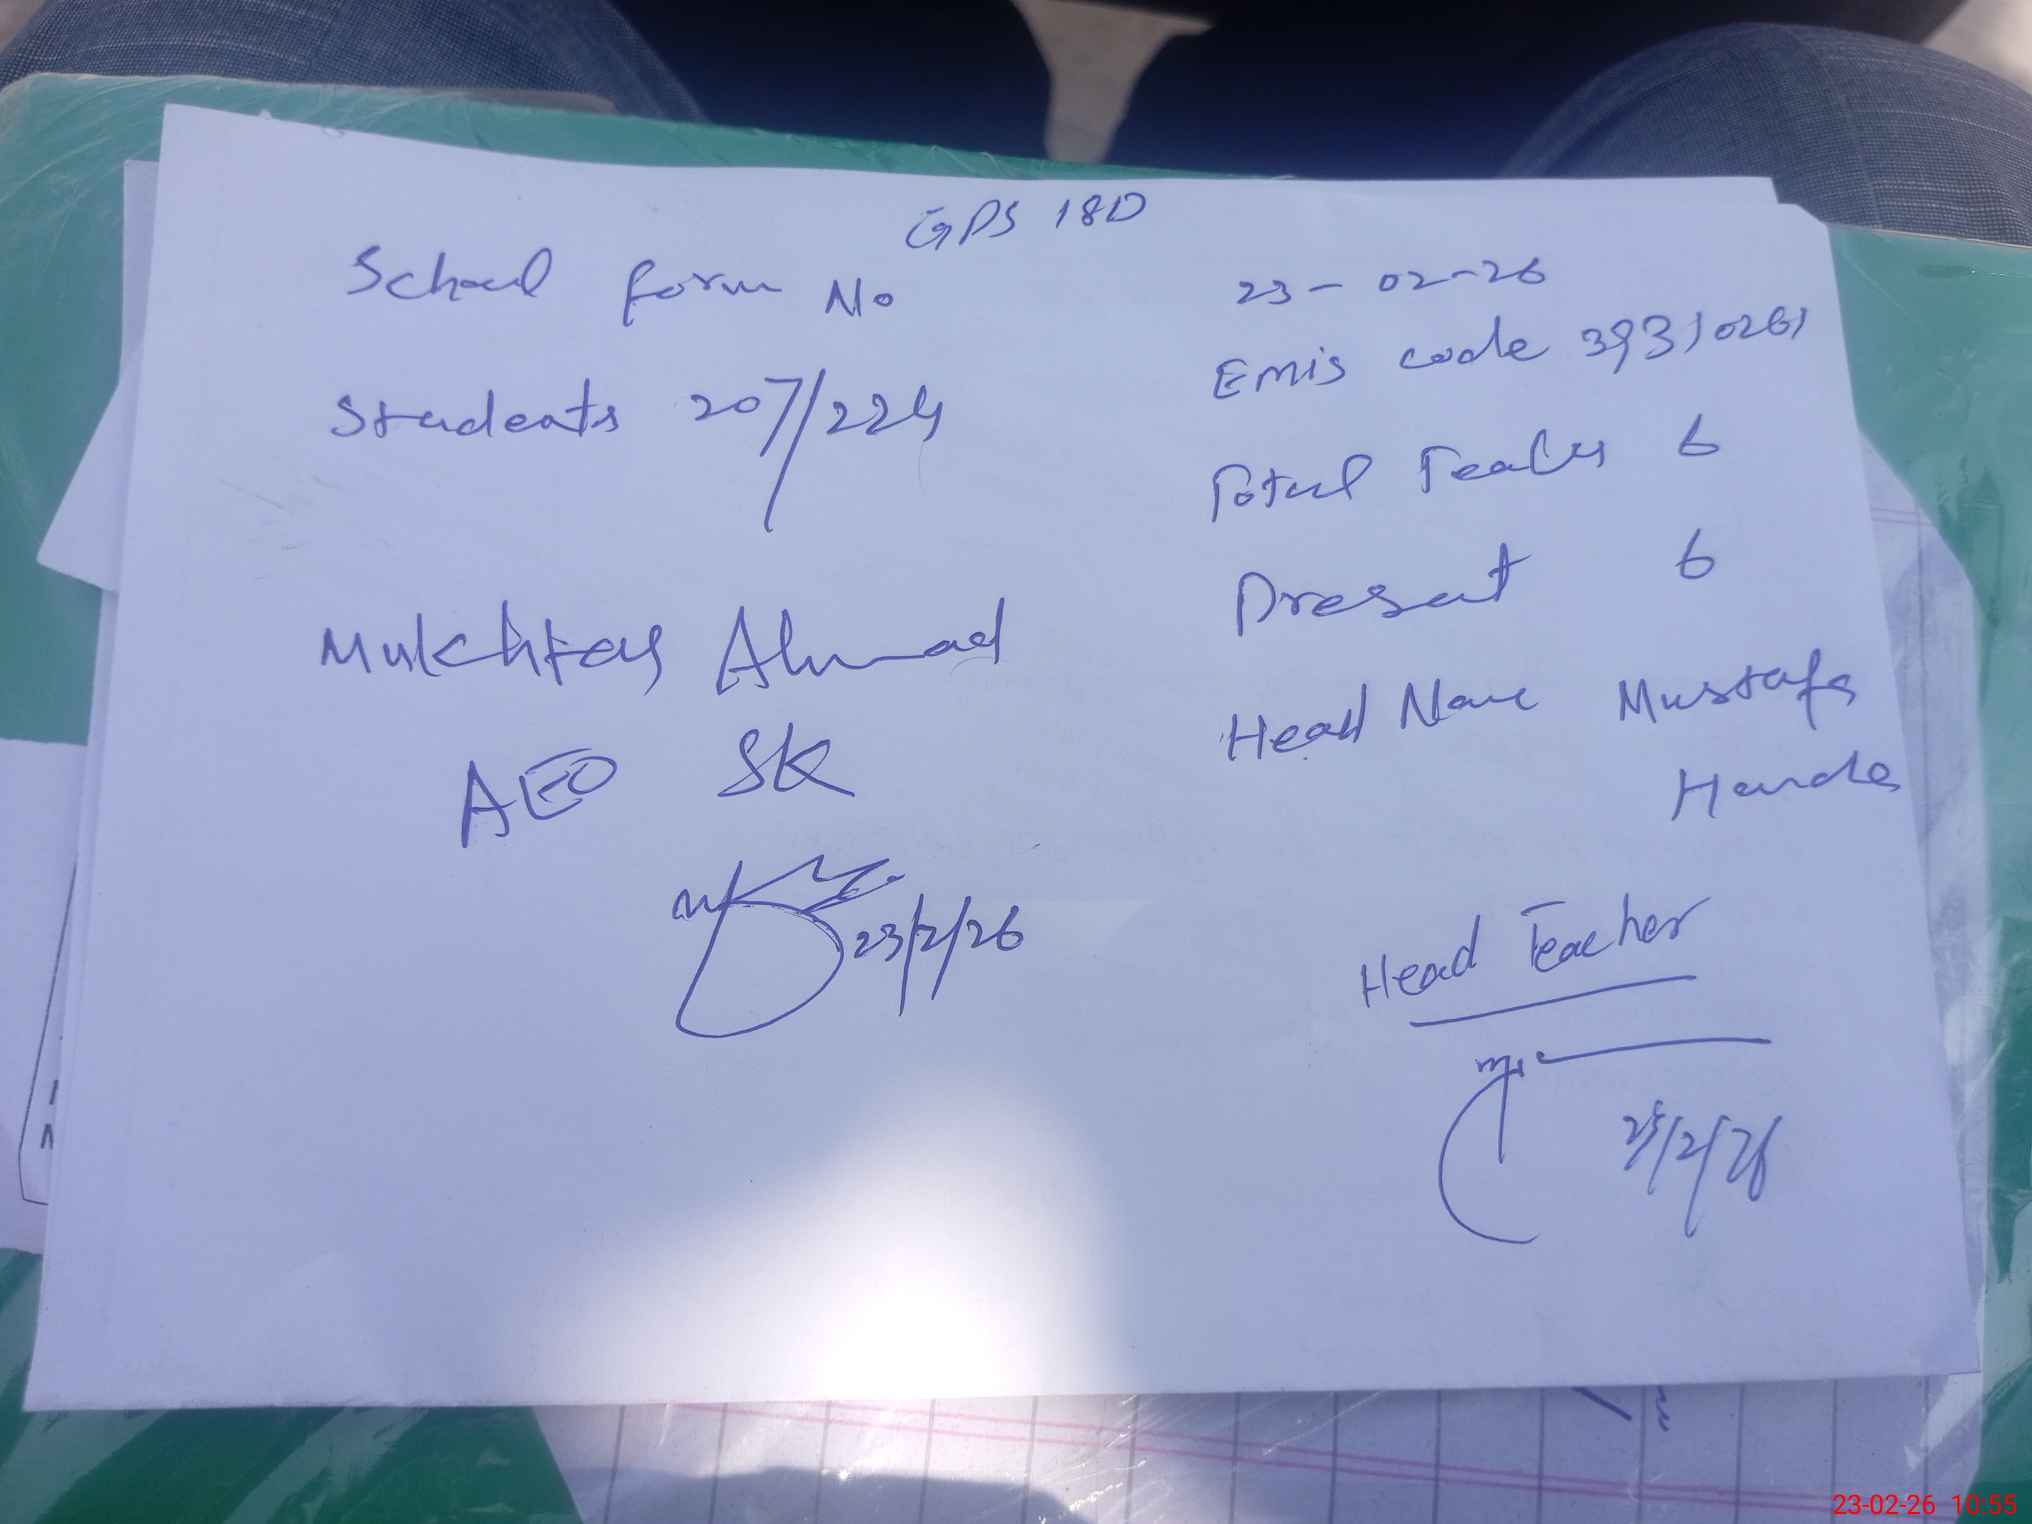 GPS 18D
School form No
23-02-26
Emis code 39310261
Students 207/224
Total Teacher 6
Present 6
Mukhtar Ahmad
Head Name Mustafa
AEO SK
23/2/26
Head Teacher
23/2/26
23-02-26 10:55